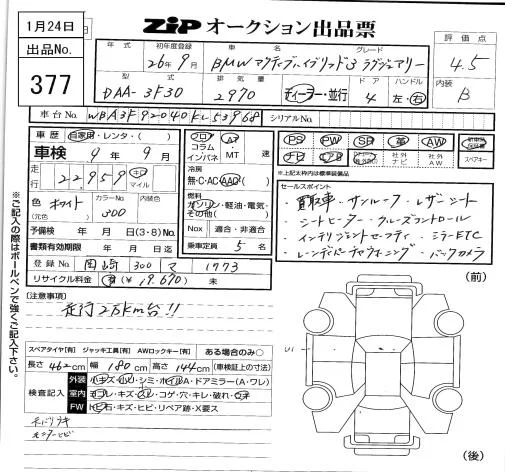 1月24日
出品No.
377
ZiP オークション出品票
年式 初年度登録 車名 グレード 評価点
26年9月 BMW アクティブハイブリッド3 ラグジュアリー 4.5
型式 排気量 ドア ハンドル 内装
DAA-3F30 2970 ディーラー・並行 4 左・右 B
車台No. WBA3F92040 シリアルNo.
車歴 自家用・レンタ・( )
車検 9年9月
走行 22,959 キロ マイル
色(元色) ホワイト カラーNo. 300 内装色
予備検 年 月 日(3・8)Mo.
書類有効期限 年 月 日迄
登録No. 岡崎 300 マ 1773
リサイクル料金 (¥19,670) 未
フロア コラム インパネ AT MT 速
冷房 無・C・AC AAC
燃料 ガソリン・軽油・電気・その他( )
Nox 適合・非適合
乗車定員 5名
PS PW SR 革 AW
ナビ 社外ナビ 社外AW スペアキー
※上記太枠内は標準装備品
セールスポイント
・買取車・サンルーフ・レザーシート
・シートヒーター・クルーズコントロール
・インテリジェントセーフティ・ミラーETC
・レーンディパーチャウォーニング・バックカメラ
※ご記入の際はボールペンで強くご記入下さい。
[注意事項]
走行2万km台!!
スペアタイヤ[有] ジャッキ工具[有] AWロックキー[有] ある場合のみ○
長さ462cm 幅180cm 高さ144cm (車検証上の寸法)
検査記入
外装 小キズ・小凹・シミ・ホイルA・ドアミラー(A・ワレ)
室内 ヨゴレ・キズ・スレ・コゲ・穴・キレ・破れ・
FW トビ石・キズ・ヒビ・リペア跡・X要ス
(前)
U1
(後)